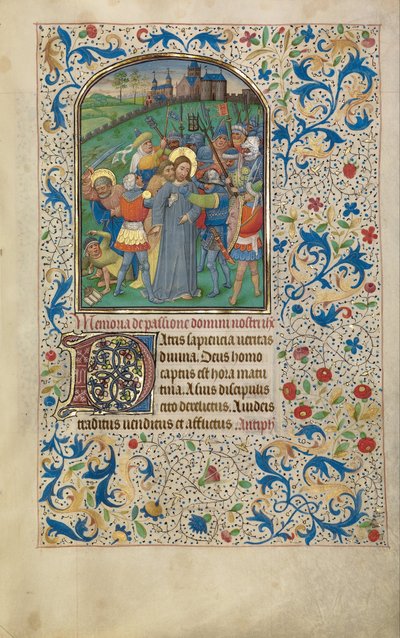 Memoria de passione domini nostri ihx
Patris sapiencia ueritas
diuina. Deus homo
captus est hora matu
tina. A suis discipulis
cito derelictus. A iudeis
traditus uenditus et afflictus. Antiph